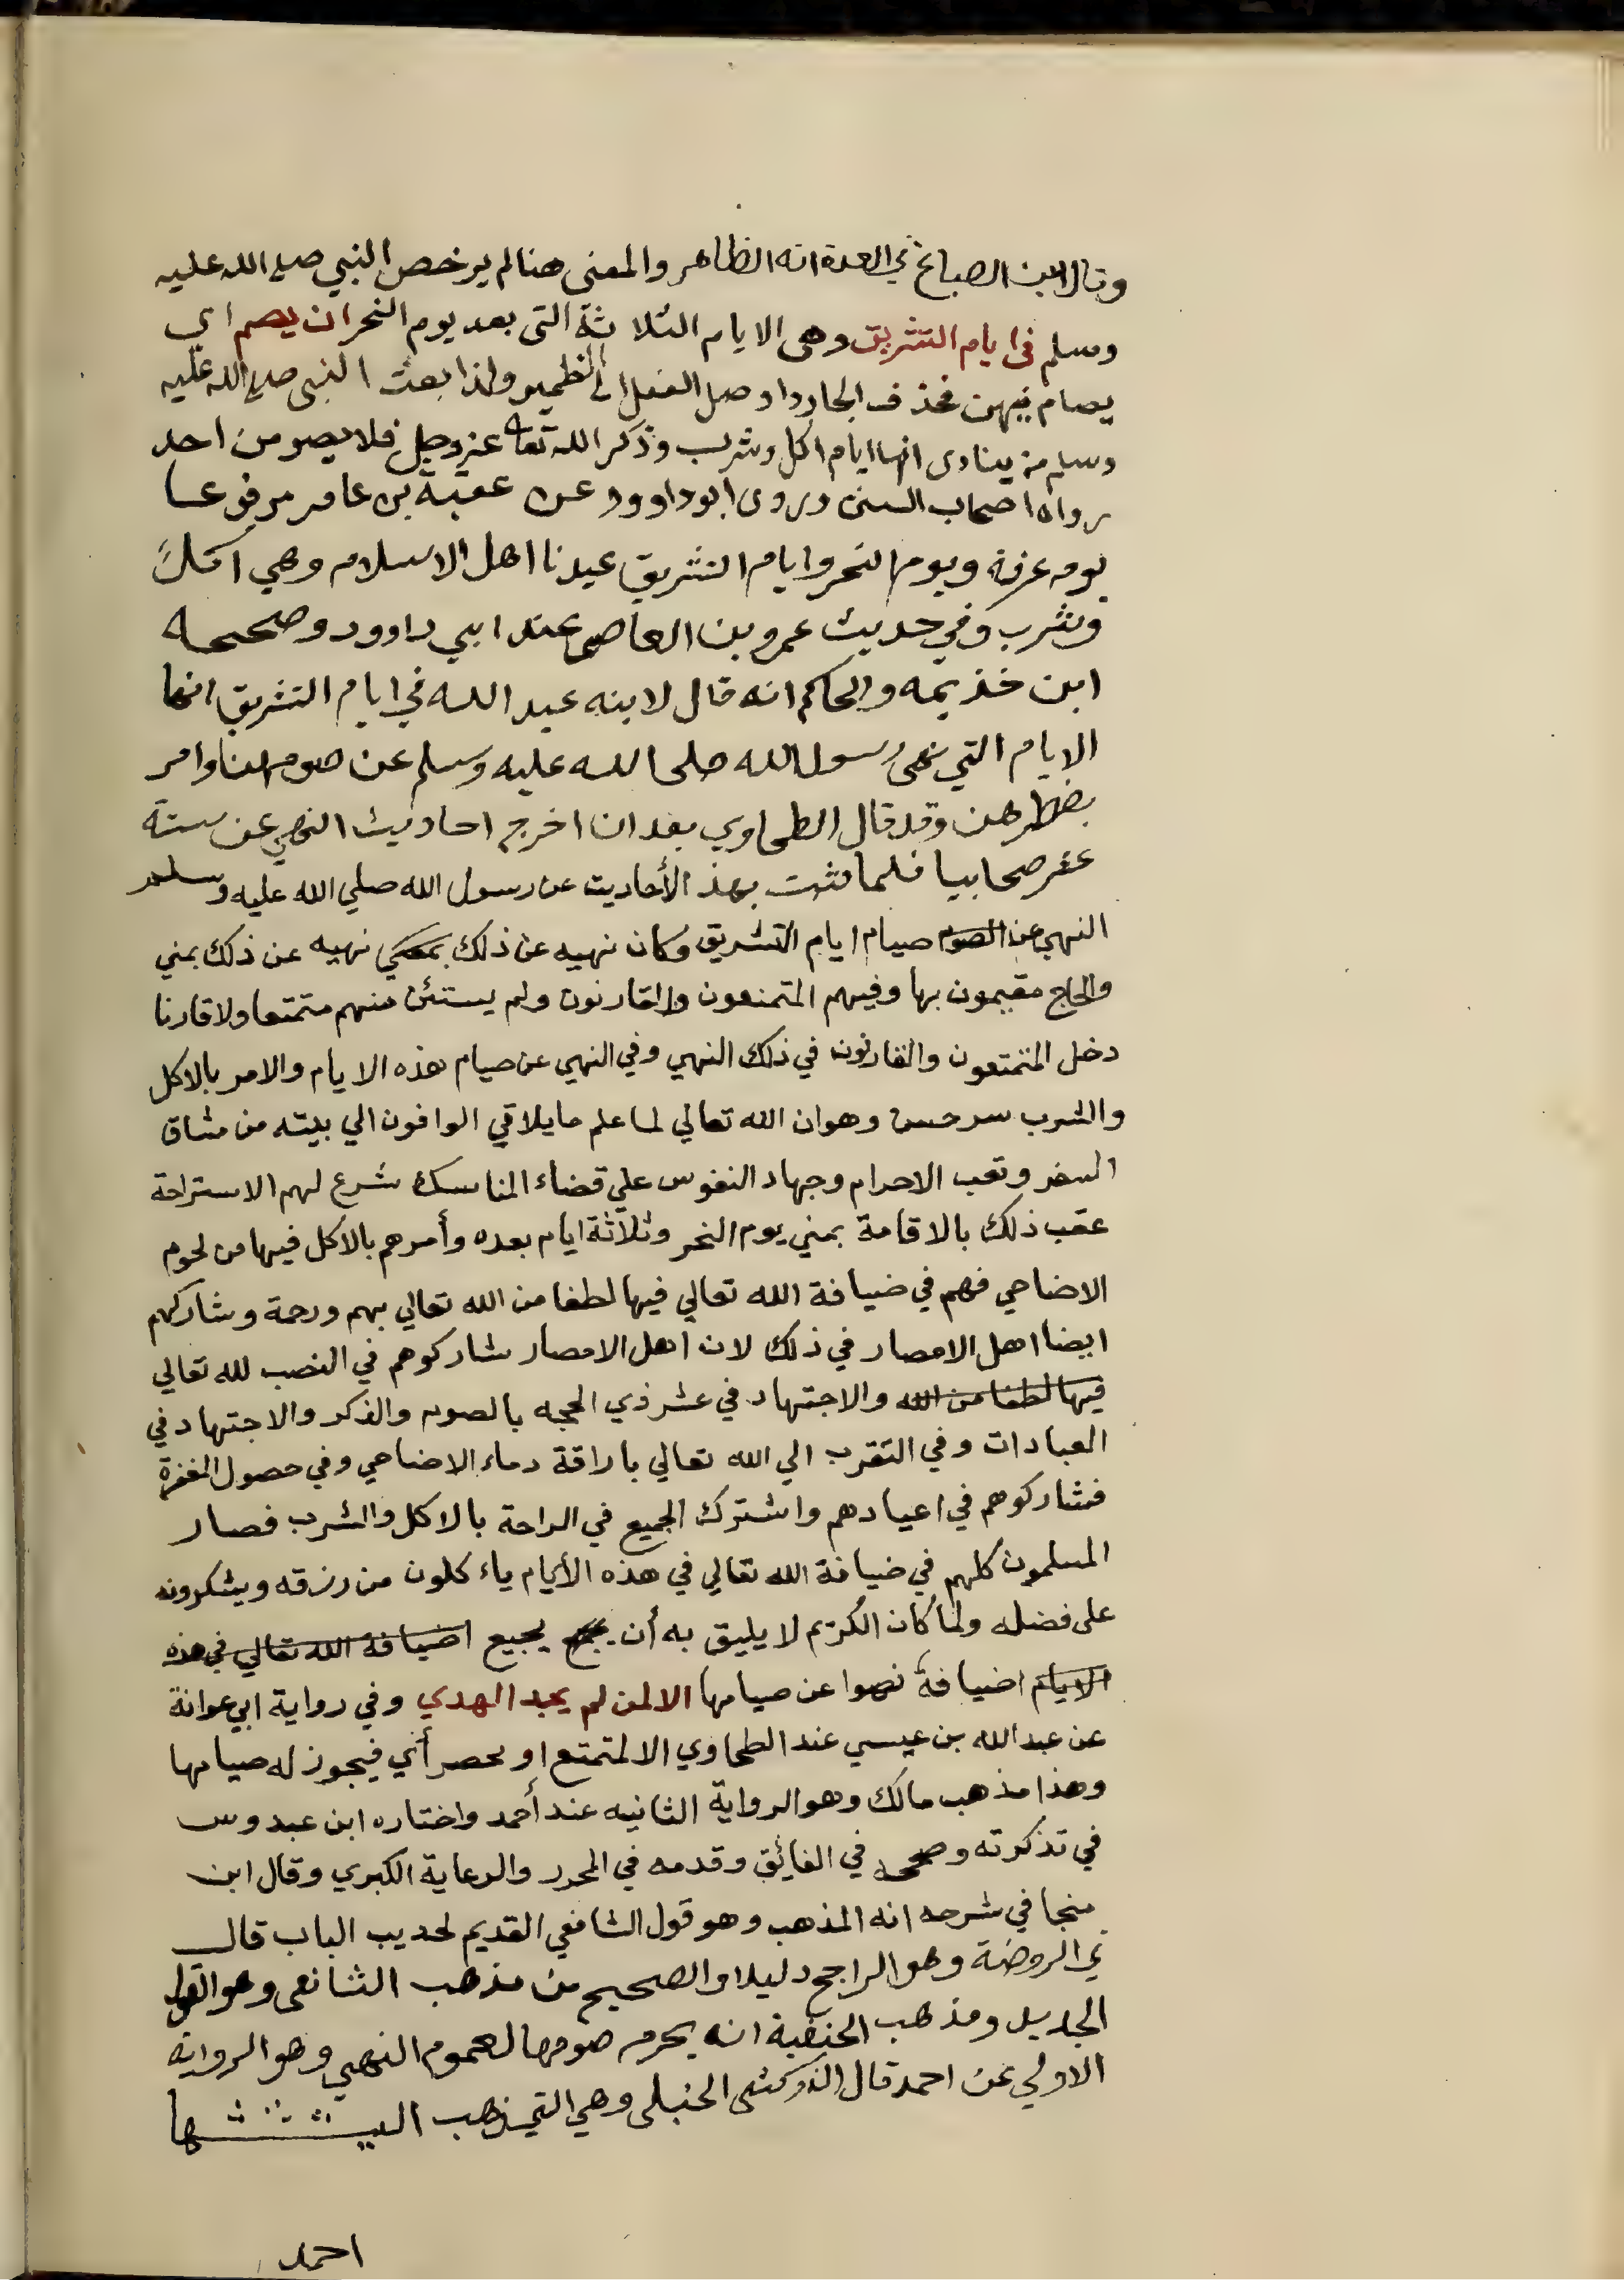 وقال ابن الصباغ في العدة انه الظاهر والمعنى هنا لم يرخص النبي صلى الله عليه
وسلم في ايام التشريق وهى الايام الثلاثة التى بعد يوم النحر ان يصم اي
يصام فيهن فحذف الجار واوصل الفعل الى الضمير ولذا بعث النبى صلى الله عليه
وسلم من ينادى انها ايام اكل وشرب وذكر الله تعالى عز وجل فلا يصومن احد
رواه اصحاب السنن وروى ابو داوود عن عقبة بن عامر مرفوعا
يوم عرفة ويوم النحر وايام التشريق عيدنا اهل الاسلام وهي اكل
وشرب وفي حديث عمرو بن العاص عند ابي داوود وصححه
ابن خذيمه والحاكم انه قال لابنه عبد الله في ايام التشريق انها
الايام التي نهى رسول الله صلى الله عليه وسلم عن صومهن وامر
بفطرهن وقد قال الطحاوي بعد ان اخرج احاديث النهي عن ستة
عشر صحابيا فلما ثبت بهذ الأحاديث عن رسول الله صلي الله عليه وسلم
النهي عن الصوم صيام ايام التشريق وكان نهيه عن ذلك بمعكي نهيه عن ذلك بمني
والحاج مقيمون بها وفيهم المتمتعون والقارنون ولم يستثن منهم متمتعا ولا قارنا
دخل المتمتعون والقارنون في ذلك النهي وفي النهي عن صيام هذه الايام والامر بالاكل
والشرب سر حسن وهو ان الله تعالي لما علم ما يلاقي الوافون الي بيته من مشاق
السفر وتعب الاحرام وجهاد النفوس علي قضاء المناسك شرع لهم الاستراحة
عقب ذلك بالاقامة بمني يوم النحر وثلاثة ايام بعده وأمرهم بالاكل فيها من لحوم
الاضاحي فهم في ضيافة الله تعالي فيها لطفا من الله تعالي بهم ورحمة وشاركهم
ايضا اهل الامصار في ذلك لان اهل الامصار شاركوهم في النصب لله تعالي
فيها لطفا من الله والاجتهاد في عشر ذي الحجه بالصوم والذكر والاجتهاد في
العبادات وفي التقرب الي الله تعالي باراقة دماء الاضاحي وفي حصول المغفرة
فشاركوهم في اعيادهم واشترك الجميع في الراحة بالاكل والشرب فصار
المسلمون كلهم في ضيافة الله تعالي في هذه الأيام ياءكلون من رزقه ويشكرونه
على فضله ولما كان الكريم لا يليق به أن يجيع اضيافة الله تعالي في هذه
الايام اضيافة نهوا عن صيامها الا لمن لم يجد الهدي وفي رواية ابي عوانة
عن عبد الله بن عيسي عند الطحاوي الا لمتمتع او محصر أي فيجوز له صيامها
وهذا مذهب مالك وهو الرواية الثانيه عند أحمد واختاره ابن عبدوس
في تذكرته وصححه في الفائق وقدمه في المحرر والرعاية الكبري وقال ابن
منجا في شرحه انه المذهب وهو قول الشافعي القديم لحديب الباب قال
في الروضة وهو الراجح دليلا والصحيح من مذهب الشافعى وهو القول
الجديد ومذهب الحنفية انه يحرم صومها لعموم النهي وهو الرواية
الاولي عن احمد قال الزركشى الحنبلى وهي التي ذهب اليها
احمد